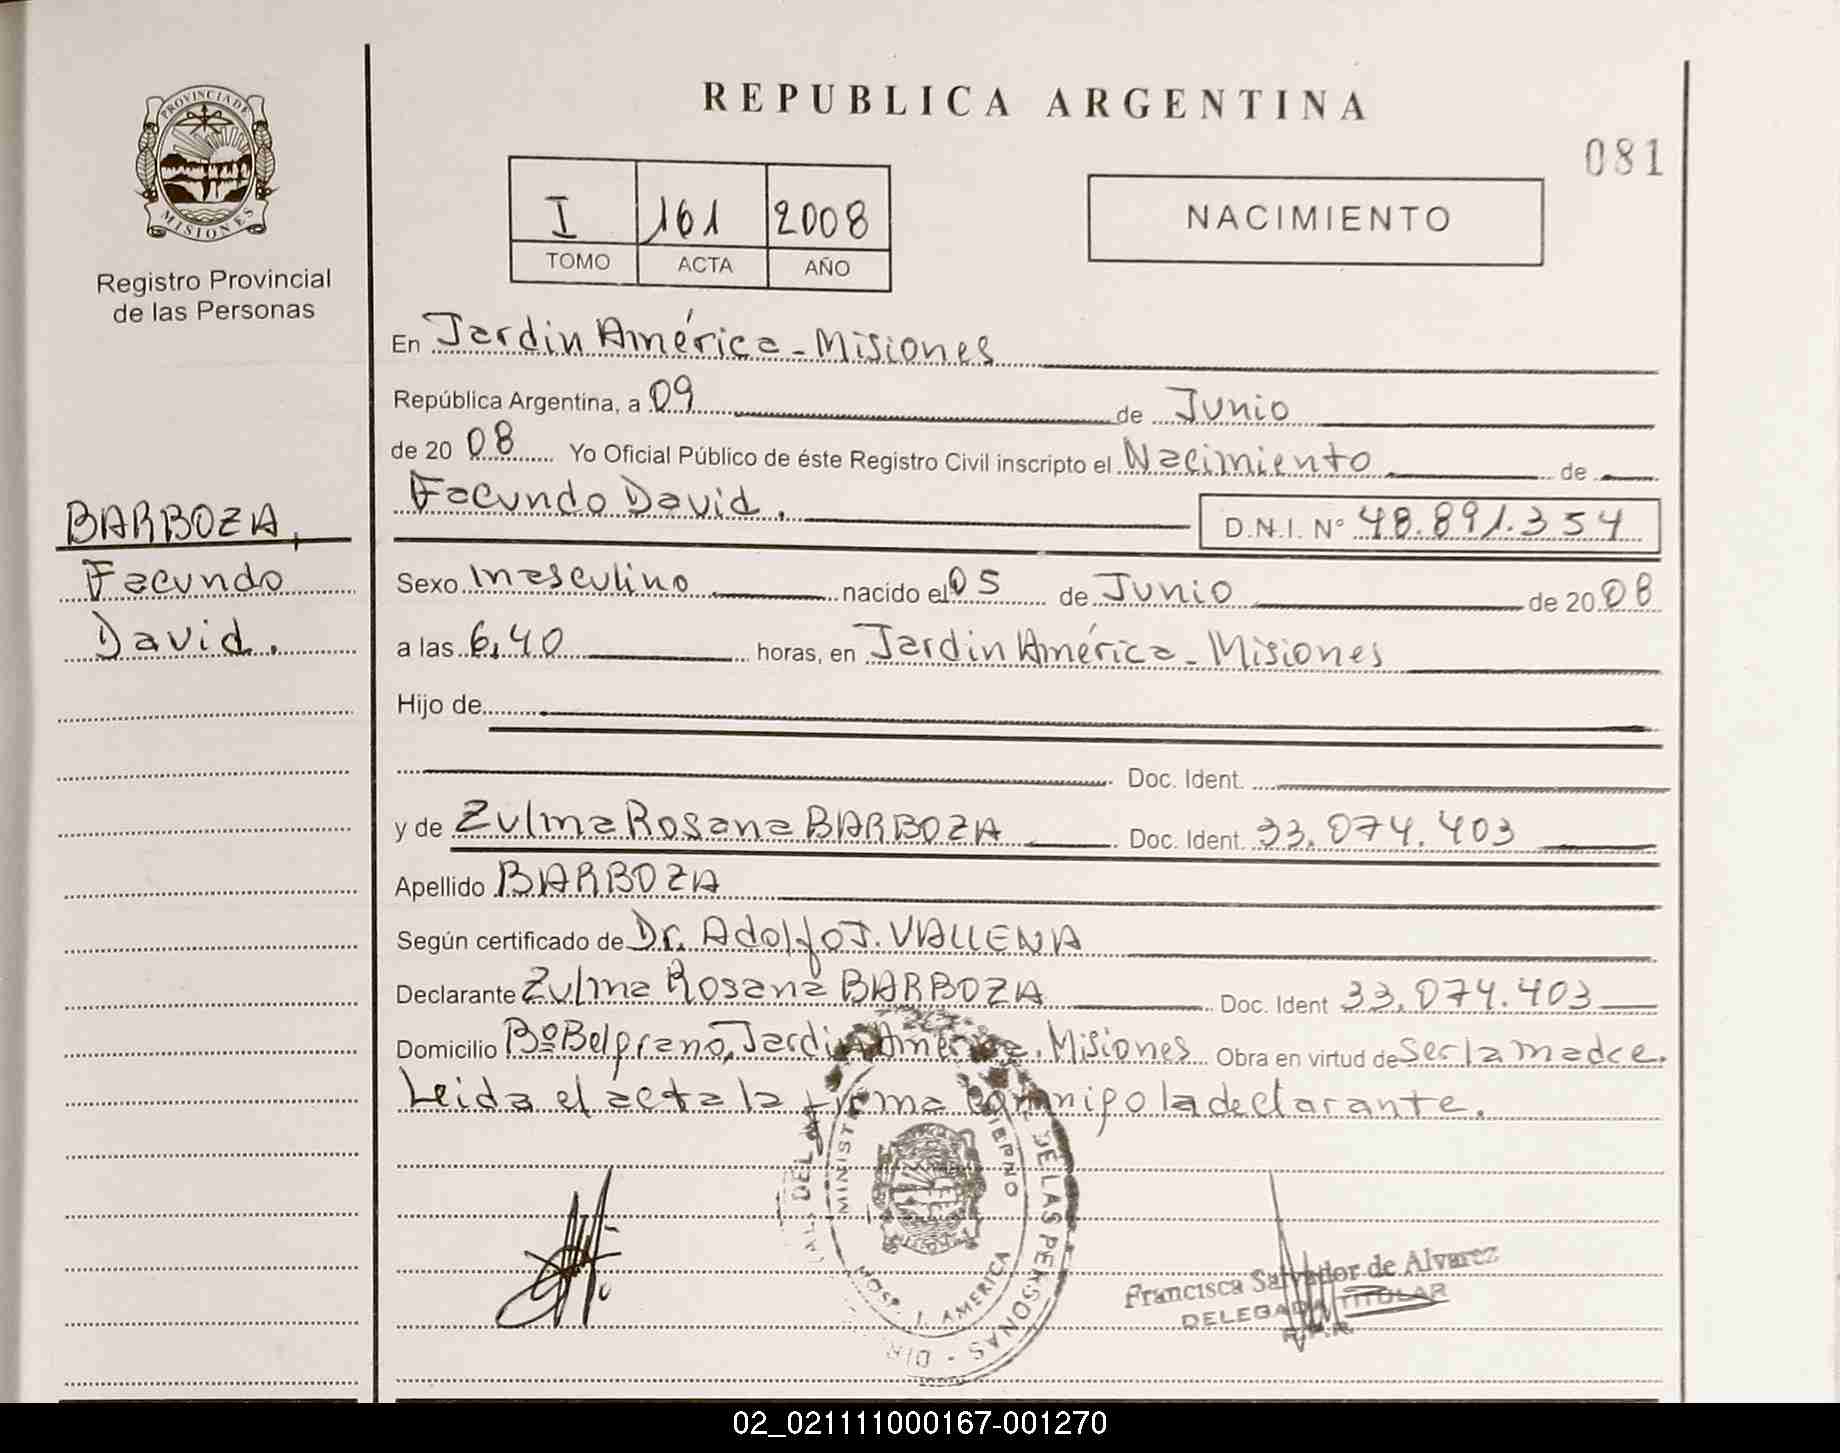 REPUBLICA ARGENTINA
081
PROVINCIA DE
MISIONES
Registro Provincial
de las Personas
I 161 2008
TOMO ACTA AÑO
NACIMIENTO
En Jardin América - Misiones
República Argentina, a 09 de Junio
de 20 08 Yo Oficial Público de éste Registro Civil inscripto el Nacimiento de
Facundo David. D.N.I. Nº 48.891.354
BARBOZA,
Facundo
David.
Sexo masculino nacido el 05 de Junio de 20 08
a las 6,40 horas, en Jardin América - Misiones
Hijo de
Doc. Ident.
y de Zulma Rosana BARBOZA Doc. Ident. 33.074.403
Apellido BARBOZA
Según certificado de Dr. Adolfo J. VALLENA
Declarante Zulma Rosana BARBOZA Doc. Ident 33.074.403
Domicilio Bº Belgrano, Jardin América. Misiones Obra en virtud de Ser la madre.
Leida el acta la firma conmigo la declarante.
MINISTE
DE LAS PERSONAS - DIR
HOSP. J. AMERICA
Francisca Salvador de Alvarez
DELEGADA TITULAR
R.P.P.
02_021111000167-001270